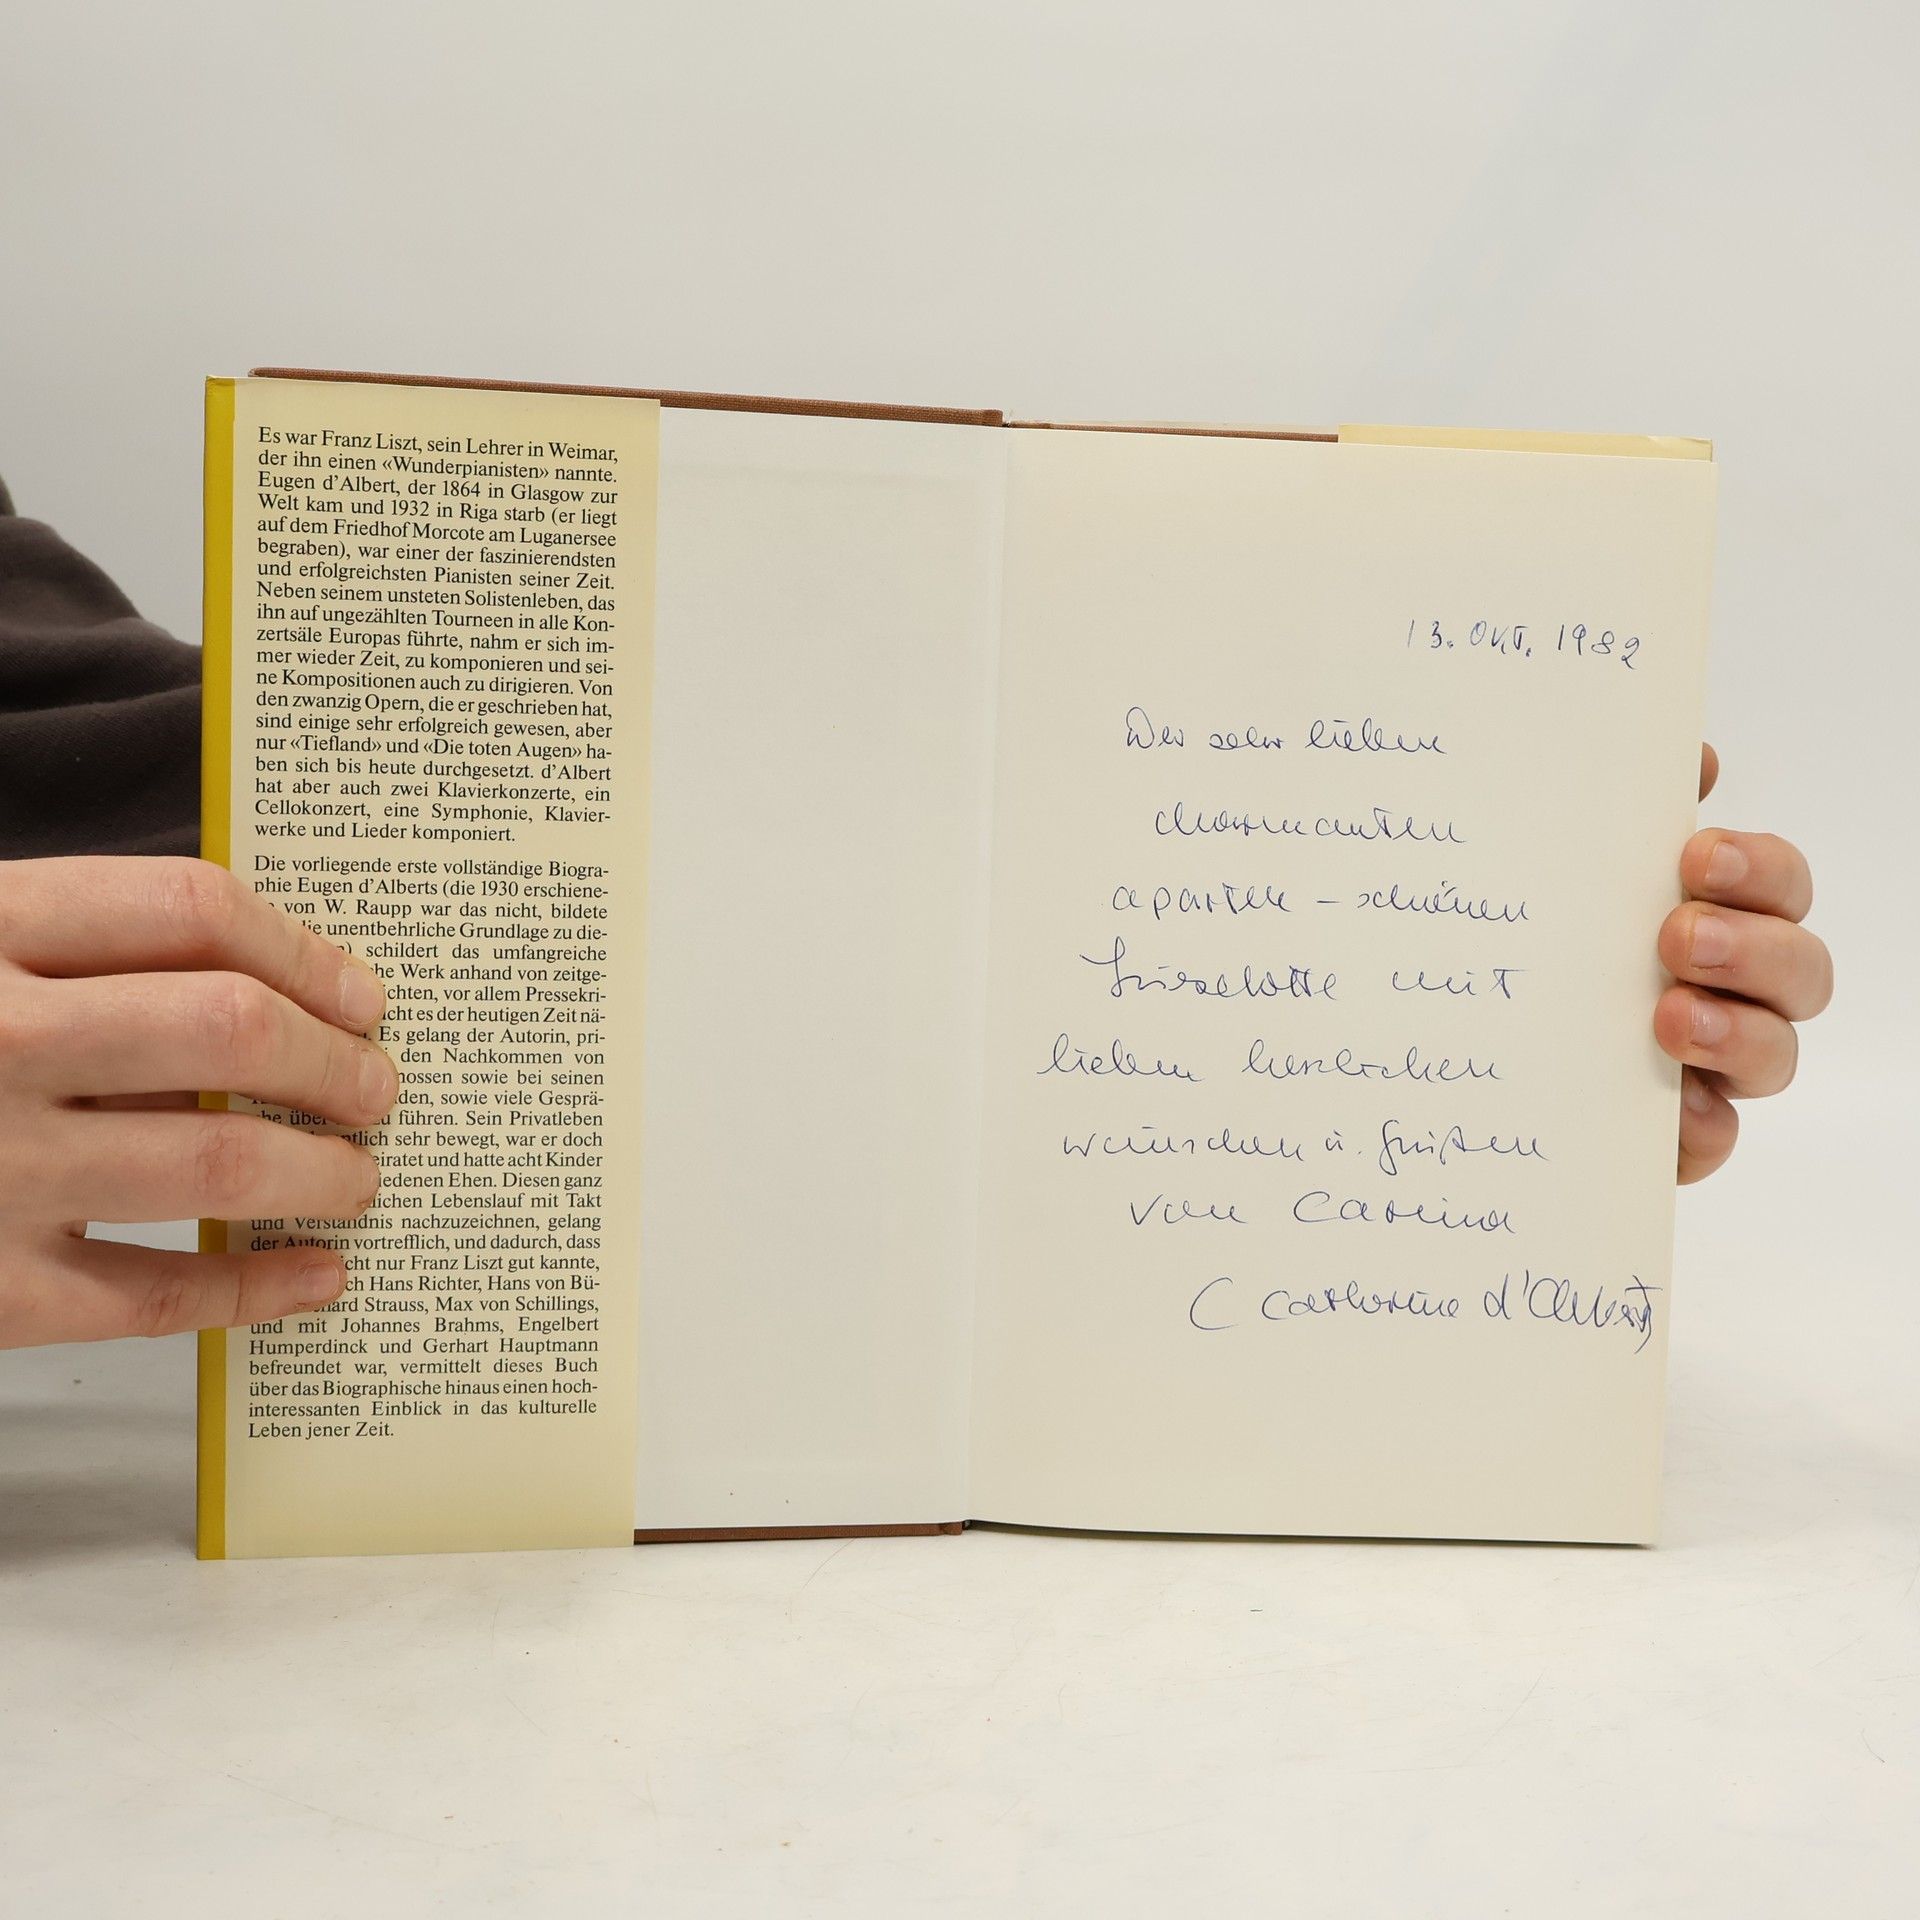 Es war Franz Liszt, sein Lehrer in Weimar,
der ihn einen «Wunderpianisten» nannte.
Eugen d'Albert, der 1864 in Glasgow zur
Welt kam und 1932 in Riga starb (er liegt
auf dem Friedhof Morcote am Luganersee
begraben), war einer der faszinierendsten
und erfolgreichsten Pianisten seiner Zeit.
Neben seinem unsteten Solistenleben, das
ihn auf ungezählten Tourneen in alle Kon-
zertsäle Europas führte, nahm er sich im-
mer wieder Zeit, zu komponieren und sei-
ne Kompositionen auch zu dirigieren. Von
den zwanzig Opern, die er geschrieben hat,
sind einige sehr erfolgreich gewesen, aber
nur «Tiefland» und «Die toten Augen» ha-
ben sich bis heute durchgesetzt. d'Albert
hat aber auch zwei Klavierkonzerte, ein
Cellokonzert, eine Symphonie, Klavier-
werke und Lieder komponiert.
Die vorliegende erste vollständige Biogra-
phie Eugen d'Alberts (die 1930 erschiene-
von W. Raupp war das nicht, bildete
unentbehrliche Grundlage zu die-
schildert das umfangreiche
Werk anhand von zeitge-
vor allem Pressekri-
es der heutigen Zeit nä-
Es gelang der Autorin, pri-
den Nachkommen von
sowie bei seinen
sowie viele Gesprä-
zu führen. Sein Privatleben
sehr bewegt, war er doch
und hatte acht Kinder
Ehen. Diesen ganz
Lebenslauf mit Takt
und Verständnis nachzuzeichnen, gelang
der Autorin vortrefflich, und dadurch, dass
nur Franz Liszt gut kannte,
Hans Richter, Hans von Bü-
Strauss, Max von Schillings,
und mit Johannes Brahms, Engelbert
Humperdinck und Gerhart Hauptmann
befreundet war, vermittelt dieses Buch
über das Biographische hinaus einen hoch-
interessanten Einblick in das kulturelle
Leben jener Zeit.
13. Okt. 1982
Der sehr lieben
charmanten
aparten - schönen
Lieselotte mit
lieben herzlichen
wünschen u. Grüßen
von Carina
(Catharine d'Albert)